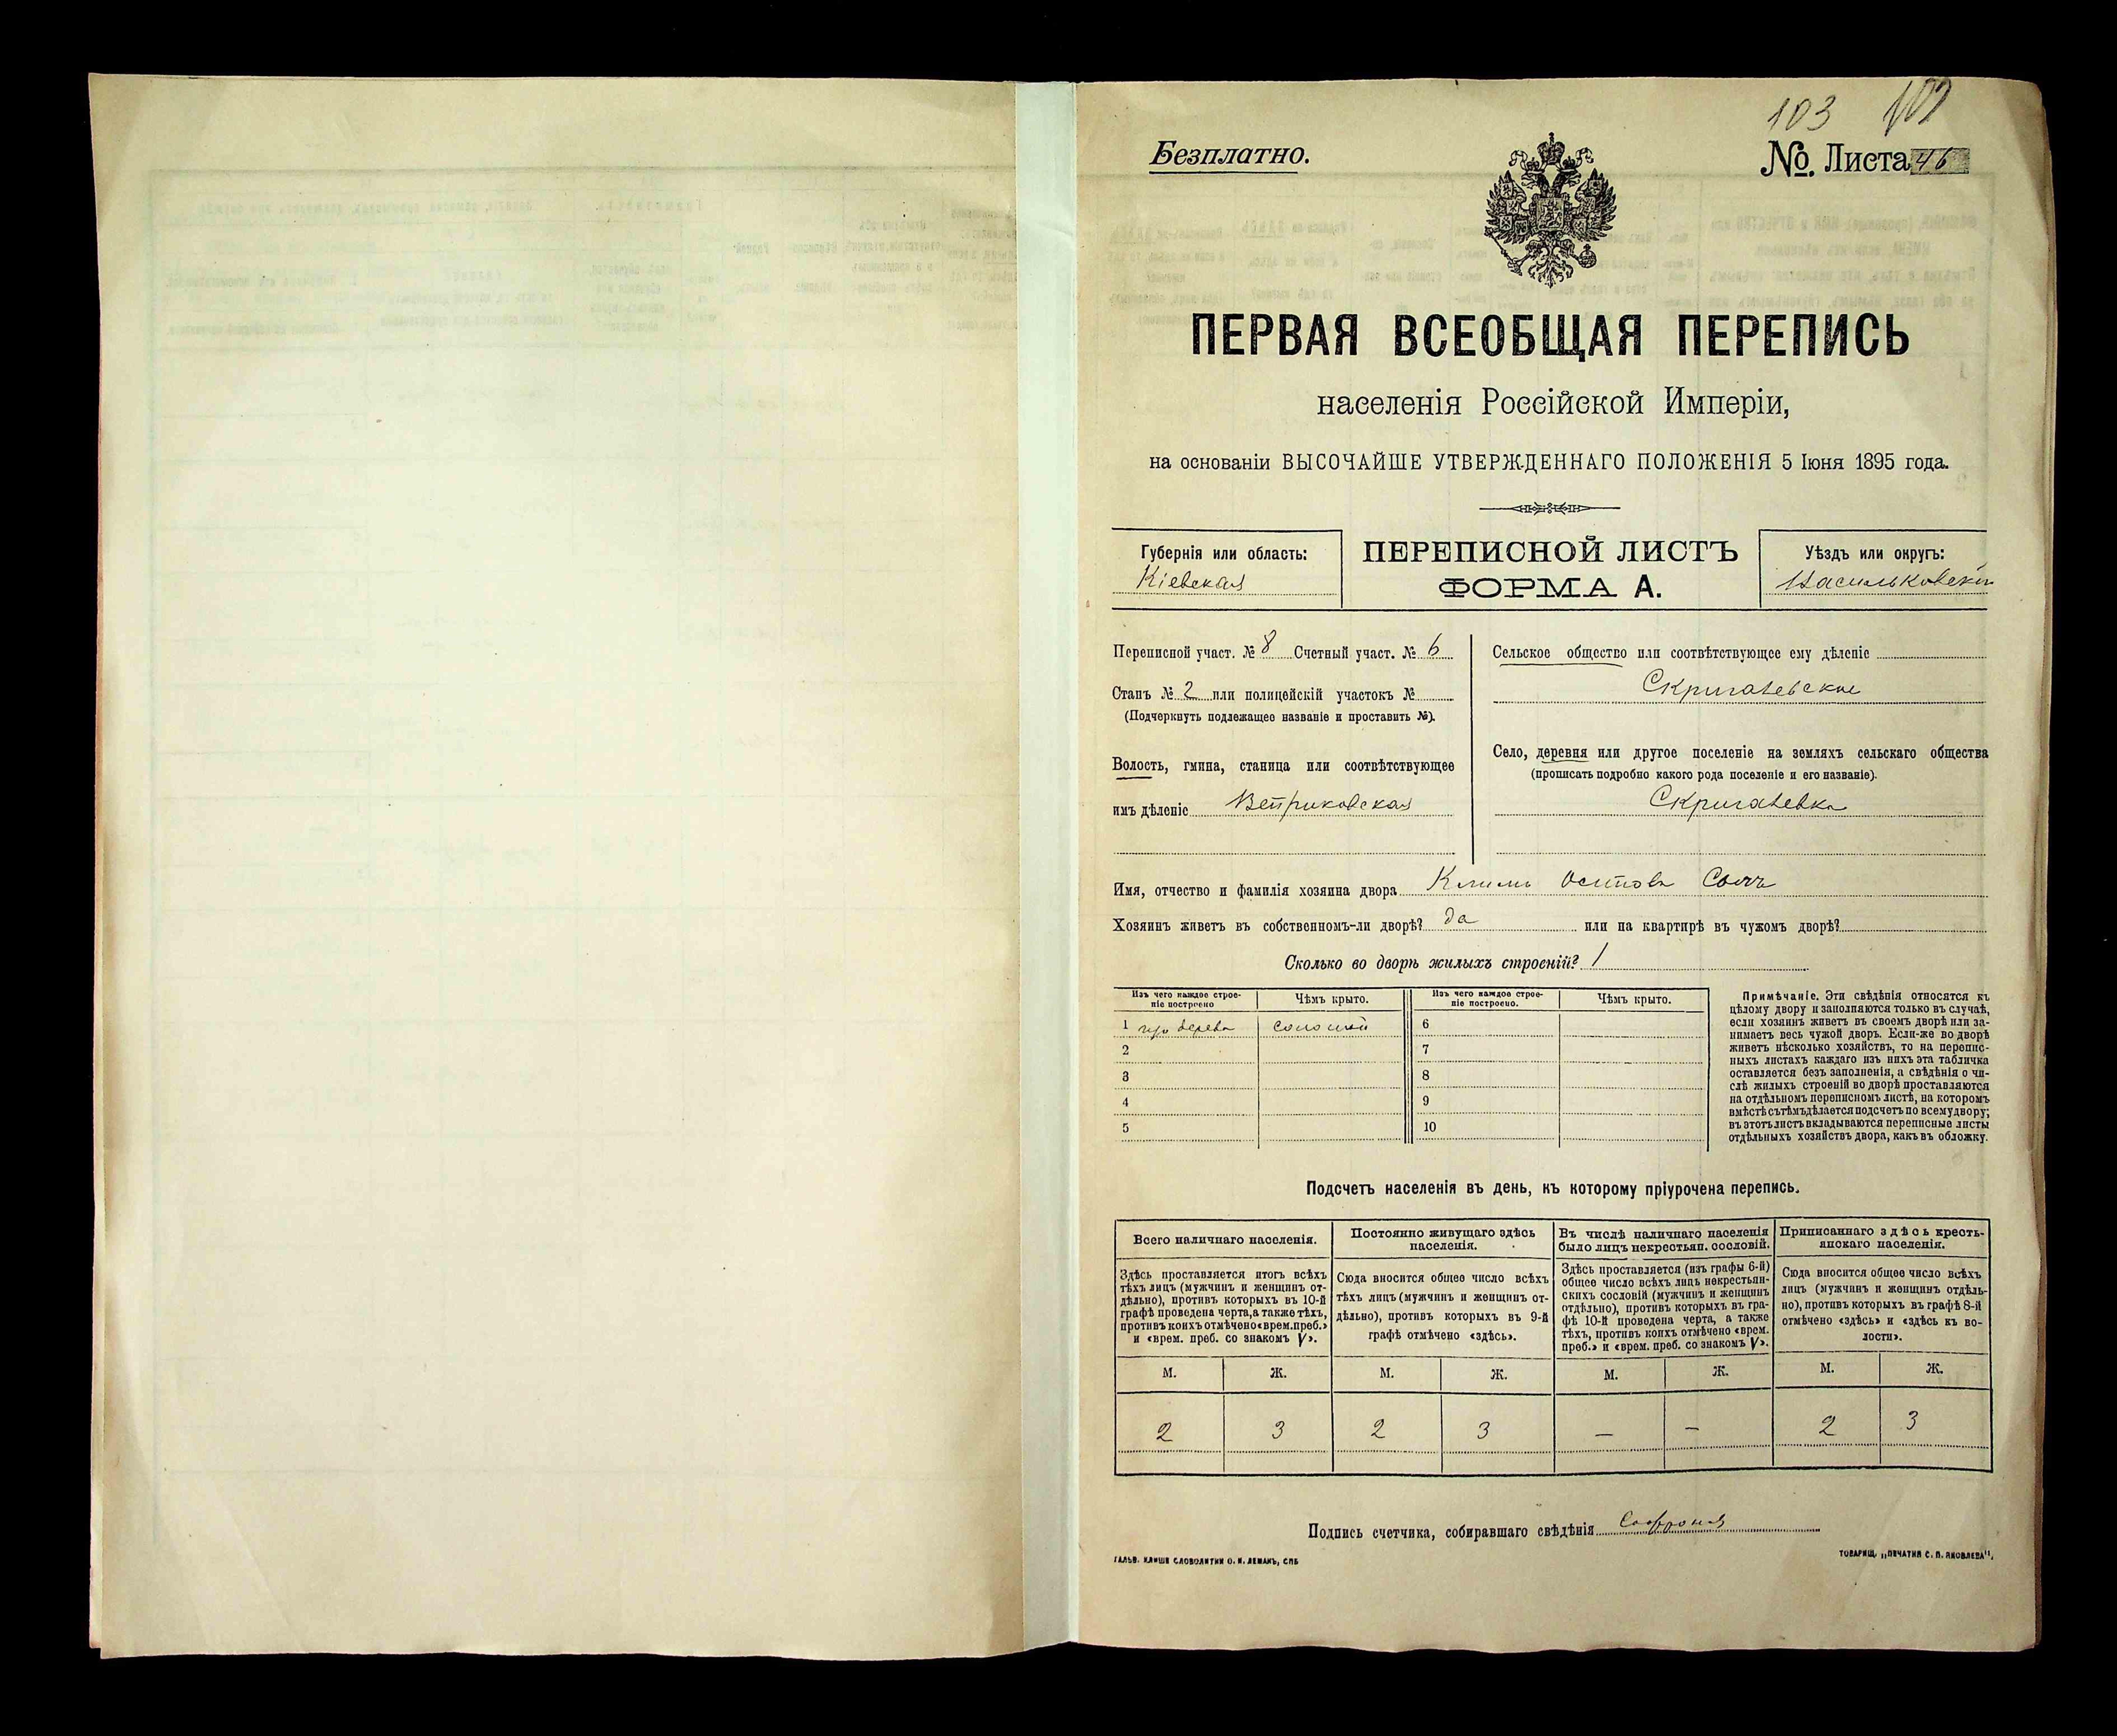 103
Безплатно.
№. Листа 46
ПЕРВАЯ ВСЕОБЩАЯ ПЕРЕПИСЬ
населенія Россійской Имперіи,
на основаніи ВЫСОЧАЙШЕ УТВЕРЖДЕННАГО ПОЛОЖЕНІЯ 5 Іюня 1895 года.
Губернія или область:
Кіевская
ПЕРЕПИСНОЙ ЛИСТЪ
ФОРМА А.
Уѣздъ или округъ:
Васильковскій
Переписной участ. № 8 Счетный участ. № 6
Станъ № 2 или полицейскій участокъ №
(Подчеркнуть подлежащее названіе и проставить №).
Волость, гмина, станица или соотвѣтствующее
имъ дѣленіе Веприковская
Сельское общество или соотвѣтствующее ему дѣленіе
Скригалевское
Село, деревня или другое поселеніе на земляхъ сельскаго общества
(прописать подробно какого рода поселеніе и его названіе).
Скригалевка
Имя, отчество и фамилія хозяина двора Климъ
Хозяинъ живетъ въ собственномъ-ли дворѣ? да или на квартирѣ въ чужомъ дворѣ?
Сколько во дворѣ жилыхъ строеній? 1
Изъ чего каждое строе-
ніе построено
Чѣмъ крыто.
Изъ чего каждое строе-
ніе построено.
Чѣмъ крыто.
1 изъ дерева соломой 6
2 7
3 8
4 9
5 10
Примѣчаніе. Эти свѣдѣнія относятся къ
цѣлому двору и заполняются только въ случаѣ,
если хозяинъ живетъ въ своемъ дворѣ или за-
нимаетъ весь чужой дворъ. Если-же во дворѣ
живетъ нѣсколько хозяйствъ, то на перепис-
ныхъ листахъ каждаго изъ нихъ эта табличка
оставляется безъ заполненія, а свѣдѣнія о чи-
слѣ жилыхъ строеній во дворѣ проставляются
на отдѣльномъ переписномъ листѣ, на которомъ
вмѣстѣ съ тѣмъ дѣлается подсчетъ по всему двору;
въ этотъ листъ вкладываются переписные листы
отдѣльныхъ хозяйствъ двора, какъ въ обложку.
Подсчетъ населенія въ день, къ которому пріурочена перепись.
Всего наличнаго населенія.
Здѣсь проставляется итогъ всѣхъ
тѣхъ лицъ (мужчинъ и женщинъ от-
дѣльно), противъ которыхъ въ 10-й
графѣ проведена черта, а также тѣхъ,
противъ коихъ отмѣчено «врем. преб.»
и «врем. преб. со знакомъ V».
Постоянно живущаго здѣсь
населенія.
Сюда вносится общее число всѣхъ
тѣхъ лицъ (мужчинъ и женщинъ от-
дѣльно), противъ которыхъ въ 9-й
графѣ отмѣчено «здѣсь».
Въ числѣ наличнаго населенія
было лицъ некрестьян. сословій.
Здѣсь проставляется (изъ графы 6-й)
общее число всѣхъ лицъ некрестьян-
скихъ сословій (мужчинъ и женщинъ
отдѣльно), противъ которыхъ въ гра-
фѣ 10-й проведена черта, а также
тѣхъ, противъ коихъ отмѣчено «врем.
преб.» и «врем. преб. со знакомъ V».
Приписаннаго здѣсь кресть-
янскаго населенія.
Сюда вносится общее число всѣхъ
лицъ (мужчинъ и женщинъ отдѣль-
но), противъ которыхъ въ графѣ 8-й
отмѣчено «здѣсь» и «здѣсь къ во-
лости».
М. Ж. М. Ж. М. Ж. М. Ж.
2 3 2 3 — — 2 3
Подпись счетчика, собиравшаго свѣдѣнія
ГАЛЬВ. КЛИШЕ СЛОВОЛИТНИ О. И. ЛЕМАНЪ, СПБ
ТОВАРИЩ. „ПЕЧАТНЯ С. П. ЯКОВЛЕВА".